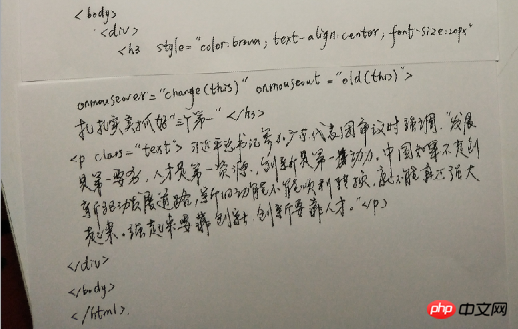 <body>
<div>
<h3 style="color:brown; text-align:center; font-size:20px"
onmouseover="change(this)" onmouseout="old(this)">
扎扎实实抓好"三个第一"</h3>
<p class="text">习近平总书记 广东代表团审议时强调,"发展
是第一要务,人才是第一资源,创新是第一动力。中国如果不走创
新驱动发展道路,新旧动能不能顺利转换,就不能真正强大
起来。强起来要靠创新,创新要靠人才。"</p>
</div>
</body>
</html>
php 中文网